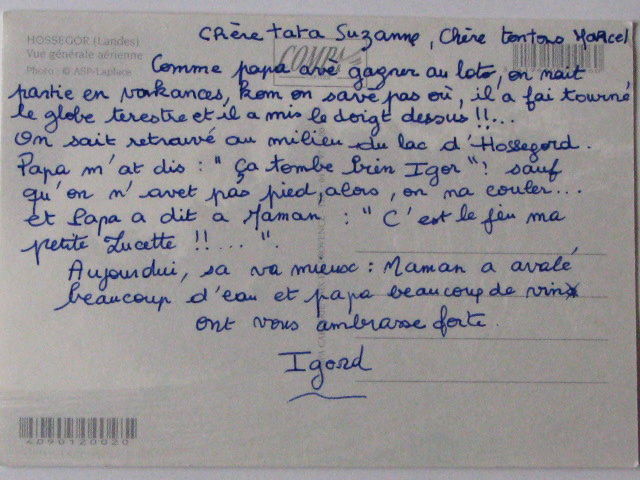 chère tata Suzanne, Chère tontons Marcel
HOSSEGOR (Landes)
Vue générale aérienne
Photo : © ASP-Laplace
Comme papa avè gagner au loto, on nait
partie en vakances, kom on savé pas où, il a fai tourné
le globe terestre et il a mis le doigt dessus !!...
On sait retrouvé au milieu du lac d'Hossegord.
Papa m'at dis : "ça tombe bien Igor"! sauf
qu'on n'avet pas pied, alors, on na couler...
et Papa a dit a Maman : "C'est le feu ma
petite Lucette !!....".
Aujourdui, sa va mieux : Maman a avalé
beaucoup d'eau et papa beaucoup de vin
ont vous ambrasse forte.
Igord
4090120020